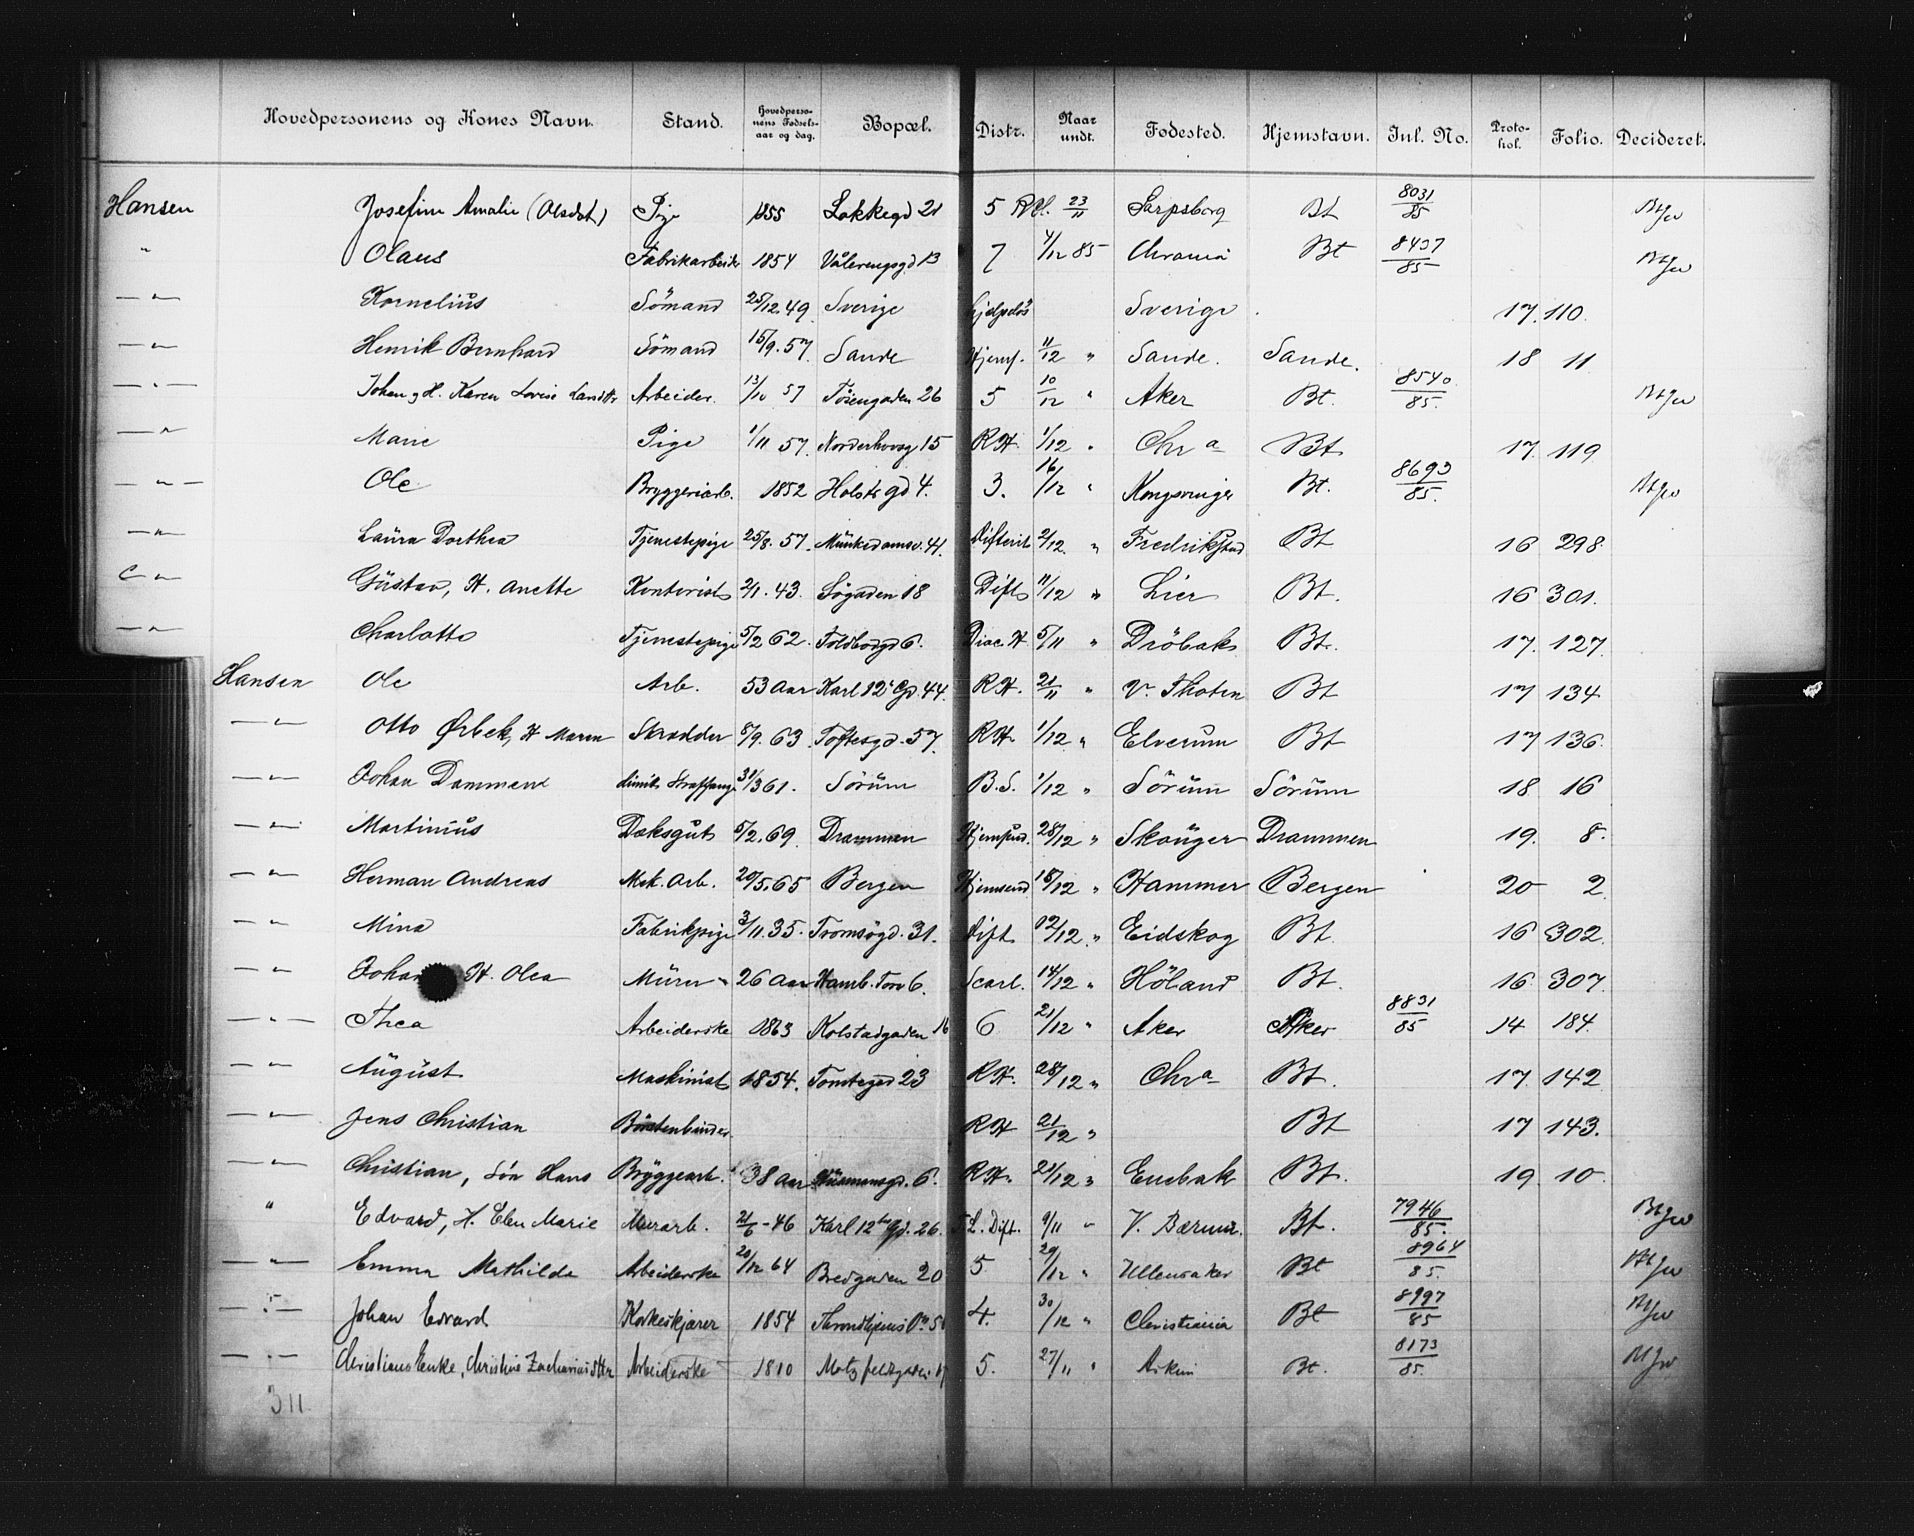 Hovedpersonens og Kones Navn. Stand. Hovedpersonens Fødselsaar og dag. Bopæl. Distr. Naar undt. Fødested. Hjemstavn. Jnl. No. Protokol. Folio. Decideret.
Hansen Josefine Amalie (Olsdat) Pige 1855 Løkkegd 21 5 23/11 Sarpsborg Bt 8031/85
" Olaus Fabrikarbeid 1854 Vålerengsgd 13 7 4/12 85 Chrania Bt 8437/85
— " — Kornelius Sömand 25/12.49. Sverige Hjelpelös Sverige 17. 110.
— " — Henrik Bernhard Sömand 15/9.57. Sande Hjemf. 11/12 " Sande. Sande. 18 11
— " — Johan og H. Karen Lovise Arbeider. 13/10 57 Tösengaden 26 5 10/12 " Aker Bt. 8540/85.
— " — Marie Pige 1/11 57. Norderhovsg 15 RH. 1/12 " Chra Bt 17. 119
— " — Ole Bryggeriarb. 1852 Holsts gd 4. 3. 16/12 " Kongsvinger Bt. 8693/85.
— " — Laura Dorthea Tjenestepige 25/8.57. Munkedamsv. 41. Difterit 2/12 " Fredrikstad Bt 16 298.
— " — Gustav, H. Anette Kontorist 2/1.43. Sögaden 18 Difts 11/12 " Lier Bt. 16 301.
— " — Charlotte Tjenestepige 5/2 62. Toldbodgd 6. Diac. H 5/11 " Dröbak Bt. 17. 127.
Hansen Ole Arb. 53 Aar Karl 12' Gd 44. RH. 21/11 " V. Thoten Bt 17 134
— " — Otto Ørbek, H Maren Skrædder 5/9.63. Toftesgd. 57. RH. 1/12 " Elverum Bt 17 136.
— " — Johan Dammene Straffange 31/3 61. Sörum B.S. 1/12 " Sörum Sörum 18 16
— " — Martinius Dæksgut 5/2.69. Drammen Hjemsend. 28/12 " Skouger Drammen 19. 8.
— " — Herman Andreas Mek. Arb. 20/5.65 Bergen Hjemsend 18/12 " Hammer Bergen 20 2
— " — Mina Fabrikpige 3/11.35. Tromsögd. 31. Dift 12/12 " Eidskog Bt. 16 302.
— " — Johan H. Olea Murer 26 Aar Hamb. Torv 6. Scarl. 14/12 " Höland Bt. 16 307.
— " — Thea Arbeiderske 1863 Kolstadgaden 16 6 21/12 " Aker Aker 8831/85 14 184.
— " — August Maskinist 1854. Tomtegd 23 RH. 28/12 " Chra Bt. 17. 142
— " — Jens Christian Börstenbinder. RH 21/12 " Bt 17 143.
— " — Christian, Sön Hans Bryggearb. 38 Aar Husmansgd. 6. RH. 21/12 " Enebak Bt. 19 10.
" Edvard, H. Elen Marie Murarb. 21/6 - 46 Karl 12te Gd. 26. Dift. 9/11 " V. Bærum. Bt. 7946/85.
— " — Emma Mathilde Arbeiderske 20/12 64 Bredgaden 20 5 29/12 " Ullensaker Bt 8964/85.
— " — Johan Edvard Korkeskjærer 1854 4. 30/12 " Christiania Bt 8997/85
— " — Christians Enke, Christine Zachariasdttr Arbeiderske 1810 Motzfeldtgaden 17 5. 27/11 " Askim Bt. 8173/85.
311